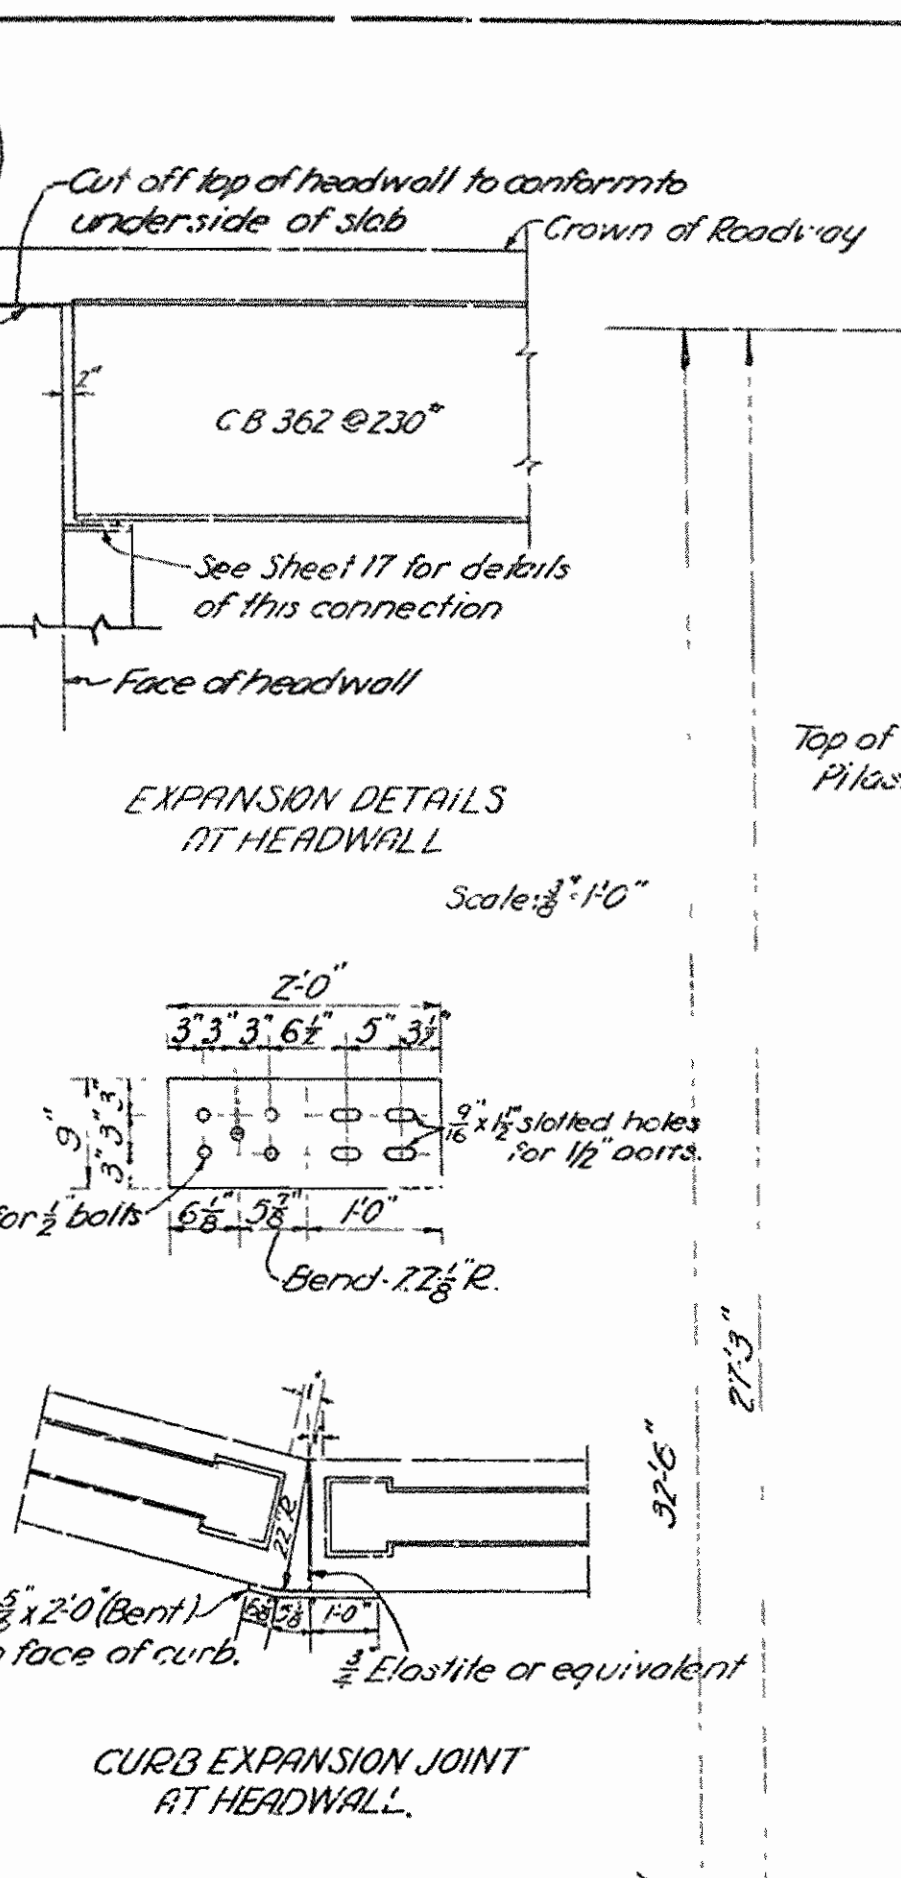 Cut off top of headwall to conform to
underside of slab
Crown of Roadway
2"
CB 362 @ 230#
See Sheet 17 for details
of this connection
Face of headwall
Top of
EXPANSION DETAILS
AT HEADWALL
Scale: 3/8" = 1'-0"
2'-0"
3" 3" 3" 6 1/2" 5" 3 1/2"
9"
3" 3" 3"
9/16" x 1 1/2" slotted holes
for 1/2" bolts.
for 1/2" bolts
6 1/8" 5 7/8" 1'-0"
Bend - 22 1/8" R.
27'-3"
32'-6"
1"
22" R
x 2'-0" (Bent)
face of curb.
1'-0"
3/4" Elastite or equivalent
CURB EXPANSION JOINT
AT HEADWALL.